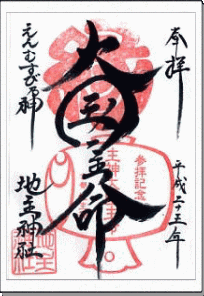 奉拝
平成二十五年
大国主命
えんむすびの神
地主神社
参拝記念